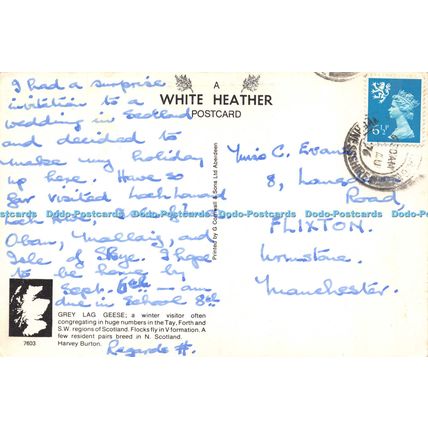 A
WHITE HEATHER
POSTCARD
I had a surprise
invitation to a
wedding in Scotland
and decided to
make my holiday
up here. Have so
far visited Loch Lomond
Oban, Mallaig, and
Isle of Skye. I hope
to be home by
Sept. 6th — am
due in School 8th
Regards H.
Miss C. Evans
8,
Road,
FLIXTON.
Urmston.
Manchester.
5½P
Printed by G Cornwall & Sons Ltd Aberdeen
Dodo-Postcards Dodo-Postcards Dodo-Postcards Dodo-Postcards Dodo-Postcards
GREY LAG GEESE; a winter visitor often
congregating in huge numbers in the Tay, Forth and
S.W. regions of Scotland. Flocks fly in V formation. A
few resident pairs breed in N. Scotland.
Harvey Burton.
7603